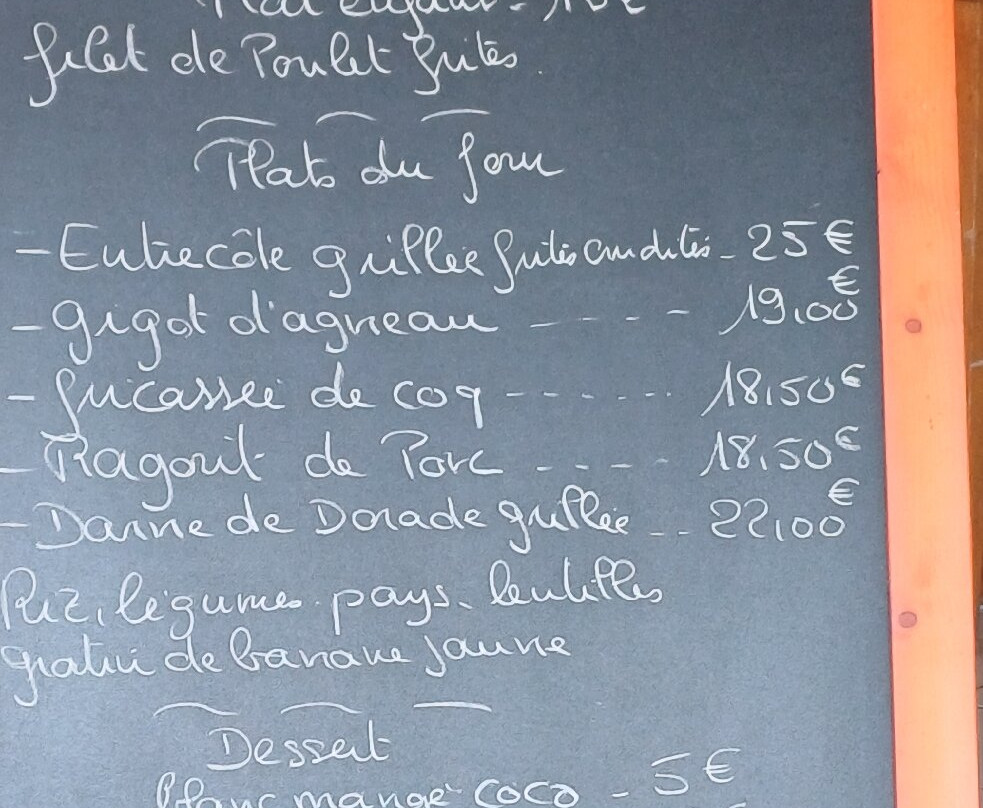 Plat enfant - 10€
filet de Poulet frites.
Plats du jour
- Entrecôte grillée frites crudités - 25€
- gigot d'agneau - - - - 19,00€
- fricassée de coq - - - - - - 18,50€
- Ragoût de Porc - - - - 18,50€
- Darne de Dorade grillée - - - 22,00€
Riz, légumes pays, lentilles
gratin de banane jaune
Dessert
Blanc mangé coco - 5€